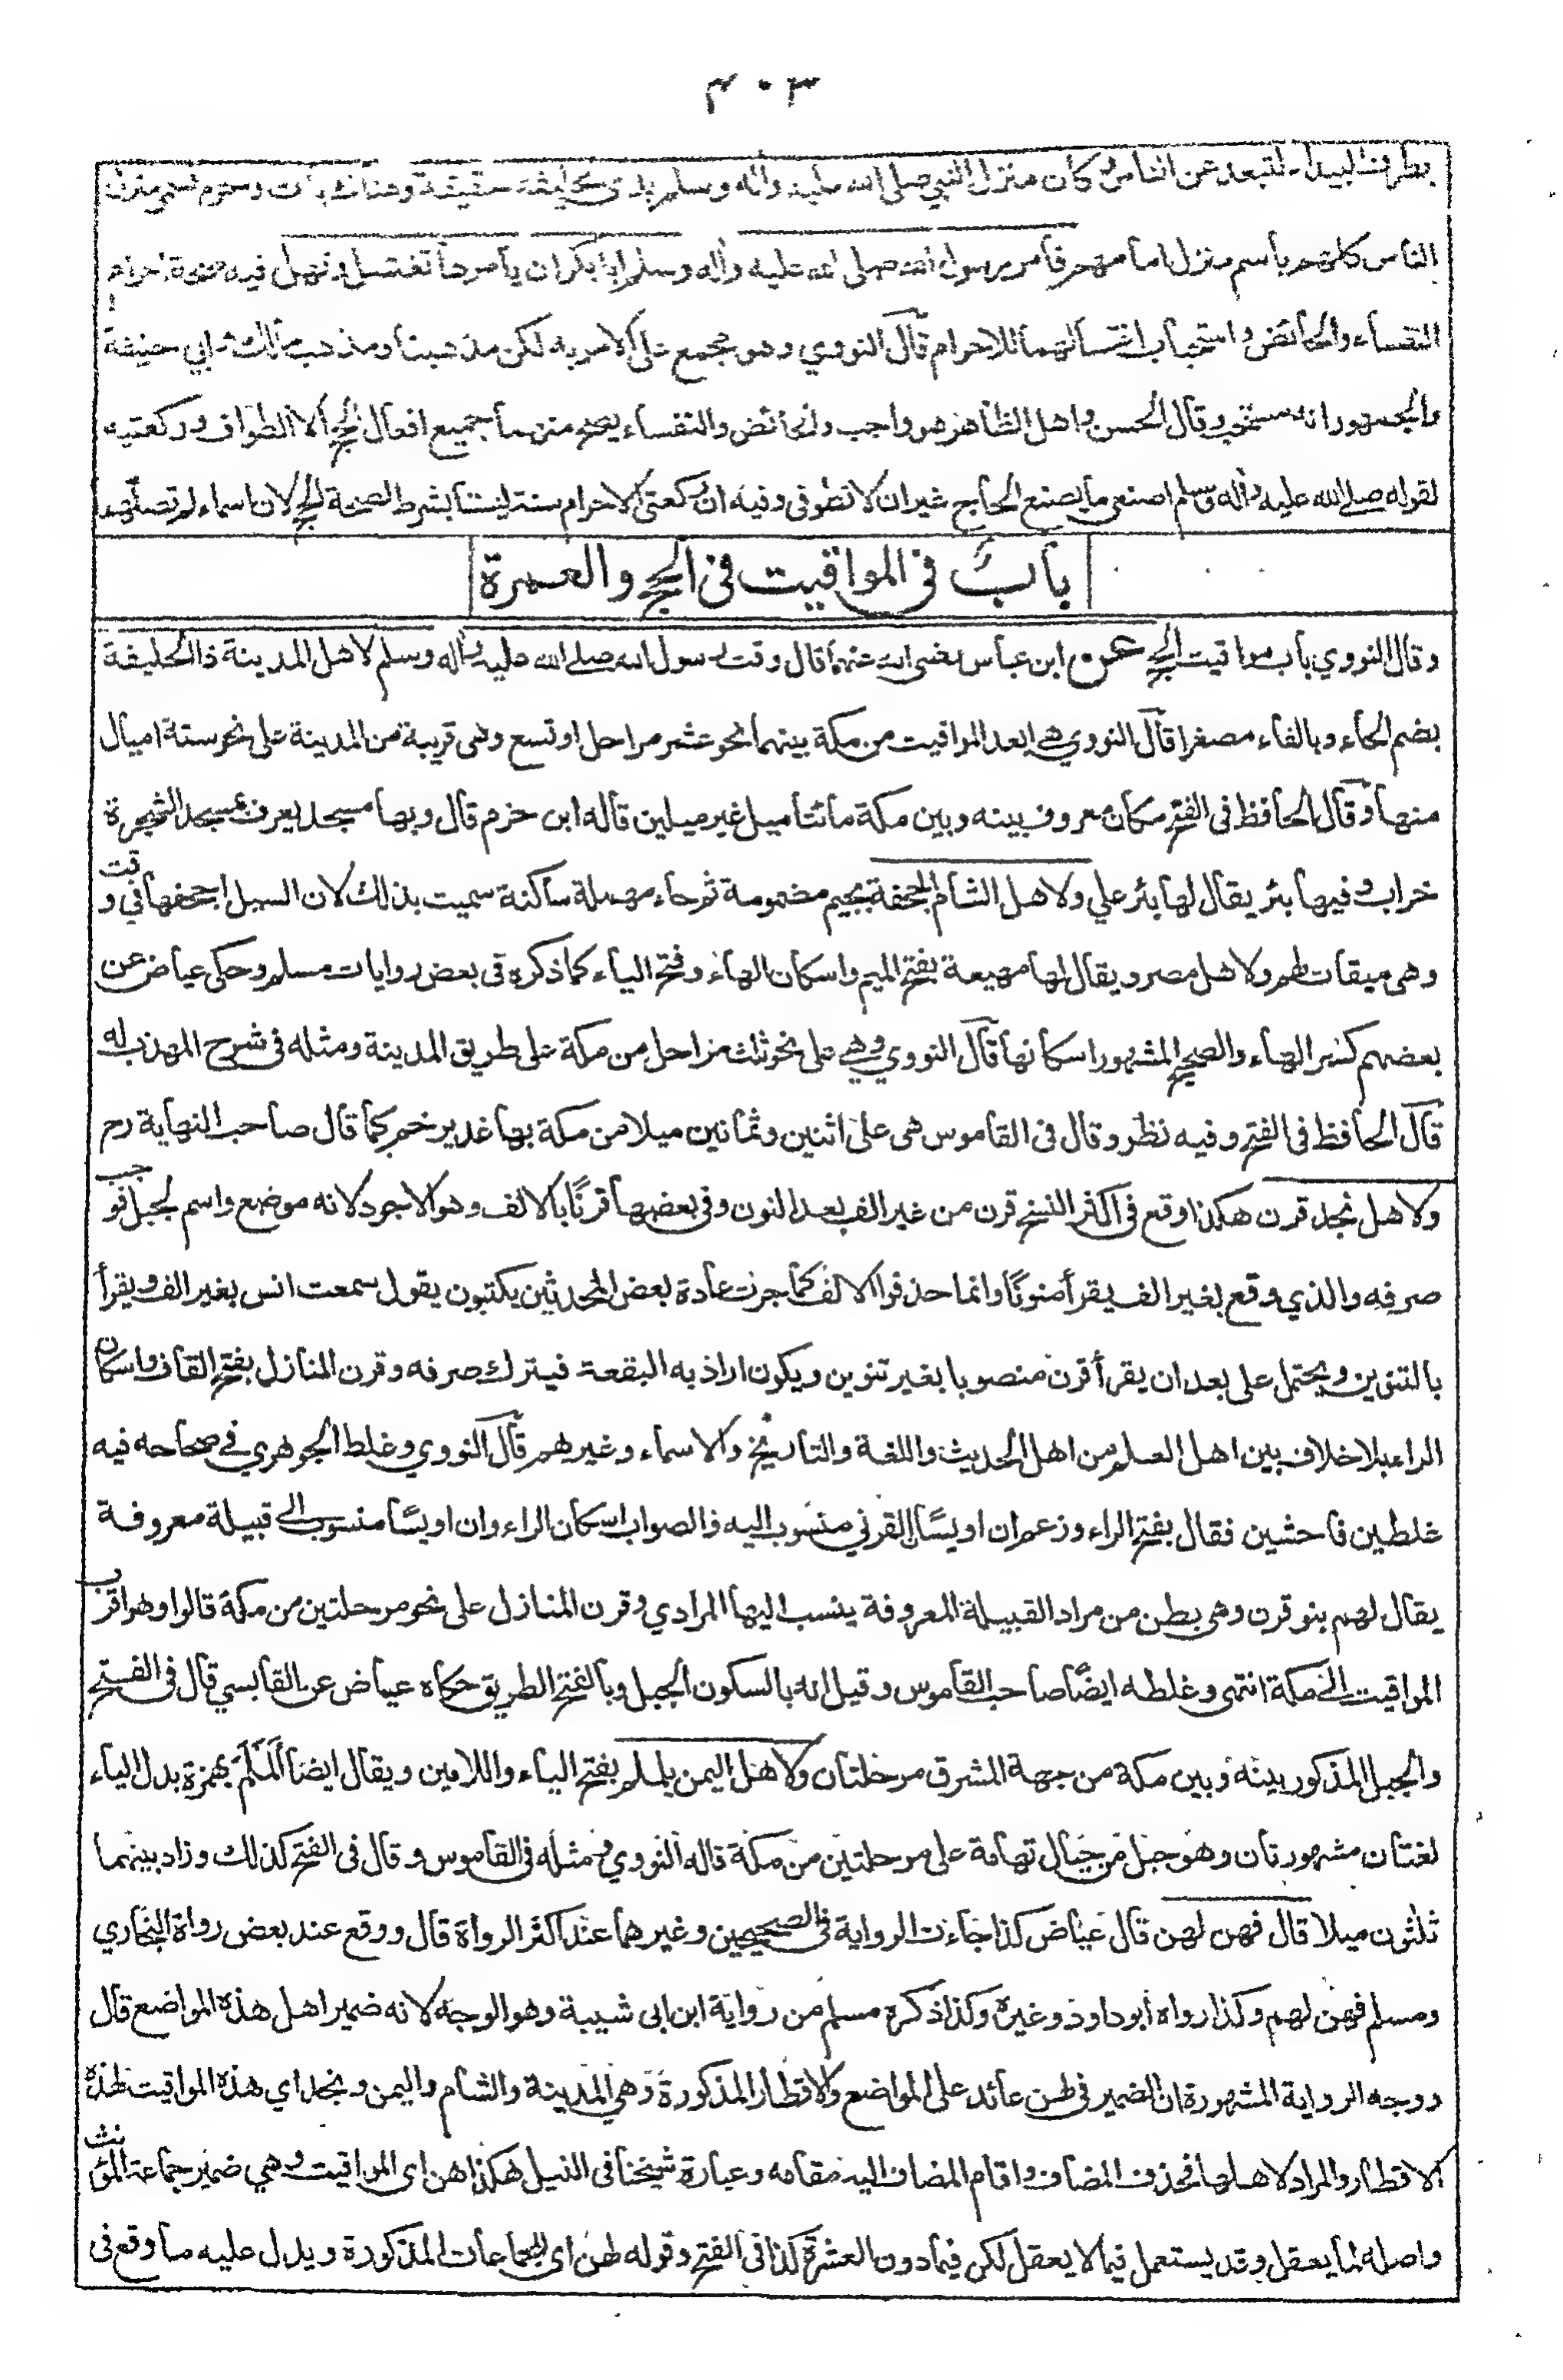 ٤٠٣
بطرف البيداء لتبعد عن الناس وكان منزل النبي صلى الله عليه وآله وسلم بذي الحليفة حقيقة وهناك بات وحرم فسمي منزل
الناس كلهم باسم منزل امامهم فأمر رسول الله صلى الله عليه وآله وسلم ابا بكر ان يأمرها تغتسل وتهل فيه صحة احرام
النفساء والحائض واستحباب اغتسالهما للاحرام قال النووي وهو مجمع على الامر به لكن مذهبنا ومذهب مالك وابي حنيفة
والجمهور انه مستحب وقال الحسن واهل الظاهر هو واجب والحائض والنفساء يصح منهما جميع افعال الحج الا الطواف وركعتيه
لقوله صلى الله عليه وآله وسلم اصنعي ما يصنع الحاج غير ان لا تطوفي وفيه ان ركعتي الاحرام سنة ليستا بشرط لصحة الحج لان اسماء لم تصلهما
باب في المواقيت في الحج والعمرة
وقال النووي باب مواقيت الحج عن ابن عباس رضي الله عنهما قال وقت رسول الله صلى الله عليه وآله وسلم لاهل المدينة ذا الحليفة
بضم الحاء وبالفاء مصغرا قال النووي هي ابعد المواقيت من مكة بينهما نحو عشر مراحل او تسع وهي قريبة من المدينة على نحو ستة اميال
منها وقال الحافظ في الفتح مكان معروف بينه وبين مكة مائتا ميل غير ميلين قاله ابن حزم قال وبها مسجد يعرف بمسجد الشجرة
خراب وفيها بئر يقال لها بئر علي ولاهل الشام الجحفة بجيم مضمومة ثم حاء مهملة ساكنة سميت بذلك لان السيل اجحفها في وقت
وهي ميقات لهم ولاهل مصر ويقال لها مهيعة بفتح الميم واسكان الهاء وفتح الياء كما ذكره في بعض روايات مسلم وحكى عياض عن
بعضهم كسر الهاء والصحيح المشهور اسكانها قال النووي وهي على نحو ثلث مراحل من مكة على طريق المدينة ومثله في شرح المهذب له
قال الحافظ في الفتح وفيه نظر وقال في القاموس هي على اثنين وثمانين ميلا من مكة بها غدير خم كما قال صاحب النهاية رح
ولاهل نجد قرن هكذا وقع في اكثر النسخ قرن من غير الف بعد النون وفي بعضها قرنًا بالالف وهو الاجود لانه موضع واسم لجبل فوجب
صرفه والذي وقع بغير الف يقرأ منونًا وانما حذفوا الالف كما جرت عادة بعض المحدثين يكتبون يقول سمعت انس بغير الف ويقرأ
بالتنوين ويحتمل على بعد ان يقرأ قرن منصوبا بغير تنوين ويكون اراد به البقعة فيترك صرفه وقرن المنازل بفتح القاف واسكان
الراء بلا خلاف بين اهل العلم من اهل الحديث واللغة والتاريخ والاسماء وغيرهم قال النووي وغلط الجوهري في صحاحه فيه
غلطين فاحشين فقال بفتح الراء وزعم ان اويسًا القرني منسوب اليه فالصواب اسكان الراء وان اويسًا منسوب الى قبيلة معروفة
يقال لهم بنو قرن وهي بطن من مراد القبيلة المعروفة ينسب اليها المرادي وقرن المنازل على نحو مرحلتين من مكة قالوا وهو اقرب
المواقيت الى مكة انتهى وغلطه ايضًا صاحب القاموس وقيل انه بالسكون الجبل وبالفتح الطريق حكاه عياض عن القابسي قال في الفتح
والجبل المذكور بينه وبين مكة من جهة المشرق مرحلتان ولاهل اليمن يلملم بفتح الياء واللامين ويقال ايضا ألَمْلَم بهمزة بدل الياء
لغتان مشهورتان وهو جبل من جبال تهامة على مرحلتين من مكة قاله النووي ومثله في القاموس وقال في الفتح كذلك وزاد بينهما
ثلثون ميلا قال فهن لهن قال عياض كذا جاءت الرواية في الصحيحين وغيرهما عند اكثر الرواة قال ووقع عند بعض رواة البخاري
ومسلم فهن لهم وكذا رواه أبو داود وغيره وكذا ذكره مسلم من رواية ابن ابي شيبة وهو الوجه لانه ضمير اهل هذه المواضع قال
ووجه الرواية المشهورة ان الضمير في لهن عائد على المواضع والاقطار المذكورة وهي المدينة والشام واليمن ونجد اي هذه المواقيت لهذه
الاقطار والمراد لاهلها فحذف المضاف واقام المضاف اليه مقامه وعبارة شيخنا في النيل هكذا هن اي المواقيت وهي ضمير جماعة المؤنث
واصله لما يعقل وقد يستعمل فيما لا يعقل لكن فيما دون العشرة كذا في الفتح وقوله لهن اي الجماعات المذكورة ويدل عليه ما وقع في